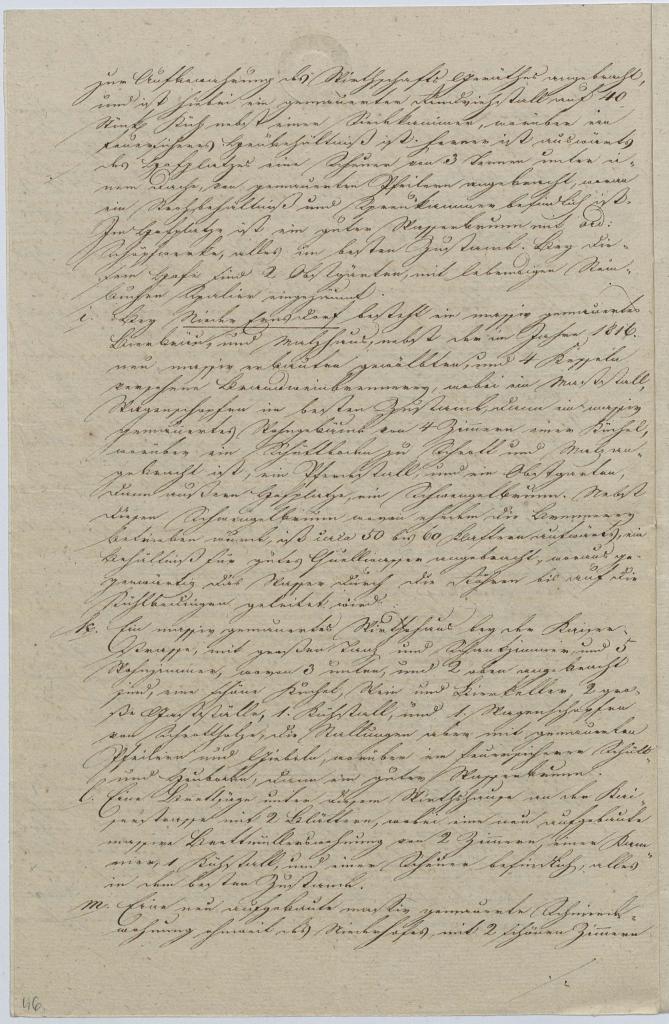 zur Aufbewahrung des Wirthschafts Geräthes angebracht,
und ist hiebei ein gemauerter Rindviehstall auf 40
Stück Küh nebst einer Siedkammer, worüber ein
feuersicheres Heubehältniß ist. Ferner ist auswärts
des Hofplatzes eine Scheuer von 3 Tennen unter ei-
nem Dache, von gemauerten Pfeilern angebracht, woran
ein Strohbehältniß und Spreukammer befindlich ist.
Im Hofplatze ist ein guter Wasserbrunn mit
Schöpfwerke, alles im besten Zustande. Bey die-
sem Hofe sind 2 Obstgärten, mit lebendigen
buchen Spalier eingezäunt.
i. Bey Nieder Ernsdorf besteht ein massiv gemauertes
Bierbräu, und Malzhaus, nebst der im Jahre 1816.
neu massiv erbauten gewölbten, und 4 Kesseln
versehene Brandweinbrennerey, wobei ein Maststall,
Wagenschopfen im besten Zustande, dann ein massiv
gemauertes Wohngebäude von 4 Zimmern einer Küchel,
worüber ein Schüttboden zu Schrott und Malz an-
gebracht ist, ein Pferdestall, und ein Obstgarten,
dann außern Hofplatze, ein Schwengelbrunn. Nebst
diesem Schwengelbrunn wovon ehedem die Brennerey
betrieben wurde, ist circa 50 bis 60 Klaftern aufwärts, ein
Behältniß für gutes Quellwasser angebracht, woraus ge-
genwärtig das Wasser durch die Röhren bis auf die
Kühl geleitet wird.
k. Ein massiv gemauertes Wirthshaus bey der Kaiser-
Strasse, mit großen Tanz und Schankzimmer und 5
Wohnzimmer, wovon 3 unten, und 2 oben angebracht
sind, eine schöne Küchel, Wein und Bierkeller, 2 gro-
ße Gastställe, 1. Kühstall, und 1. Wagenschopfen
von Schrottholze, die Stallungen aber mit gemauerten
Pfeilern und Giebeln, worüber ein feuersicherer Schütt
und Heuboden, dann ein guter Wasserbrunn.
l. Eine Brettsäge unter diesem Wirthshause an der Kai-
serstrasse mit 2 Blättern, wobei eine neu aufgebaute
massive Brettmüllerswohnung von 2 Zimmern, einer Kam
mer, 1 Kühstall, und einer Scheuer befindlich, alles
in dem besten Zustande.
m. Eine neu aufgebaute massiv gemauerte Schmieds-
wohnung ohnweit des Niederhofes, mit 2 schönen Zimmern
46.